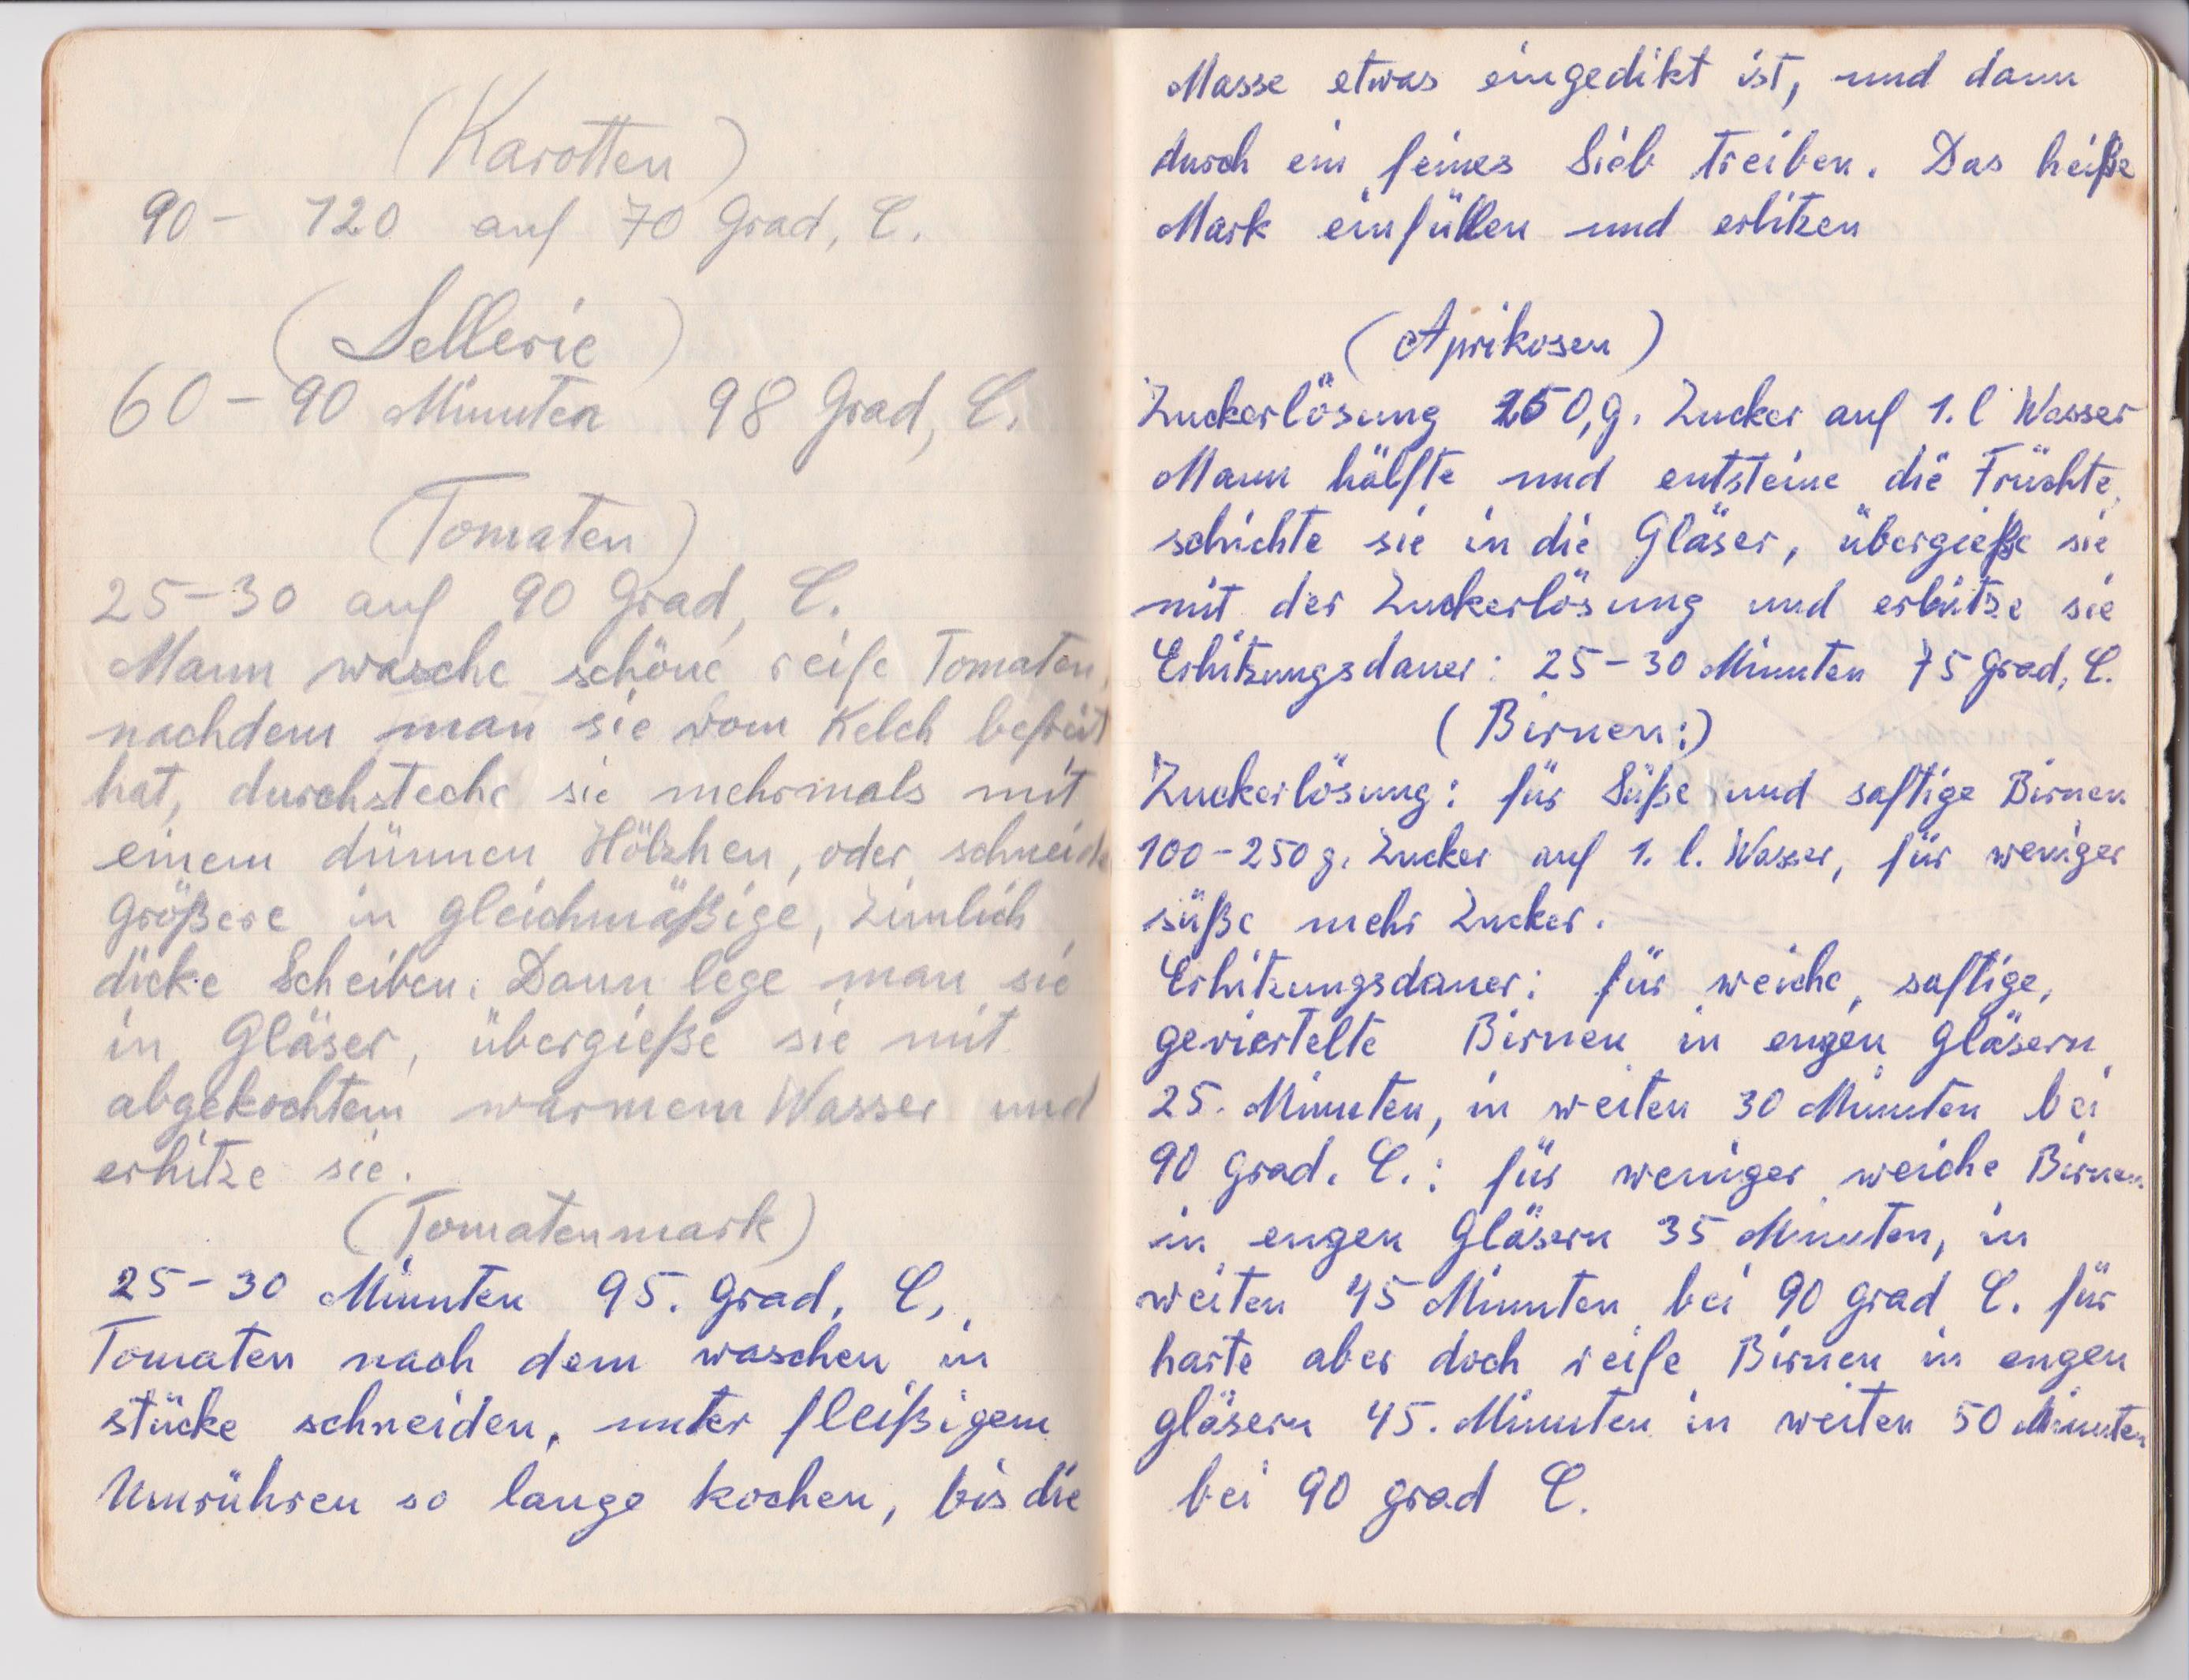 (Karotten)
90 - 120 auf 70 Grad, C.
(Sellerie)
60 - 90 Minuten 98 Grad, C.
(Tomaten)
25-30 auf 90 Grad, C.
Mann wasche schöne reife Tomaten,
nachdem man sie vom Kelch befreit
hat, durchsteche sie mehrmals mit
einem dünnen Hölzhen, oder schneide
größere in gleichmäßige, zimlich
dicke Scheiben. Dann lege man sie
in Gläser, übergieße sie mit
abgekochtem warmem Wasser und
erhitze sie.
(Tomatenmark)
25-30 Minuten 95. Grad, C,
Tomaten nach dem waschen in
stücke schneiden, unter fleißigem
Umrühren so lange kochen, bis die
Masse etwas eingedikt ist, und dann
durch ein feines Sieb treiben. Das heiße
Mark einfüllen und erhitzen
(Aprikosen)
Zuckerlösung 250,g. Zucker auf 1.l Wasser
Mann hälfte und entsteine die Früchte,
schichte sie in die Gläser, übergieße sie
mit der Zuckerlösung und erhitze sie
Erhitzungsdauer: 25-30 Minuten 75 Grad, C.
(Birnen:)
Zuckerlösung: für Süße und saftige Birnen
100-250g. Zucker auf 1. l. Wasser, für weniger
süße mehr Zucker.
Erhitzungsdauer: für weiche, saftige,
geviertelte Birnen in engen Gläsern
25. Minuten, in weiten 30 Minuten bei
90 Grad. C.: für weniger weiche Birnen
in engen Gläsern 35 Minuten, in
weiten 45 Minuten bei 90 grad C. für
harte aber doch reife Birnen in engen
gläsern 45. Minuten in weiten 50 Minuten
bei 90 grad C.